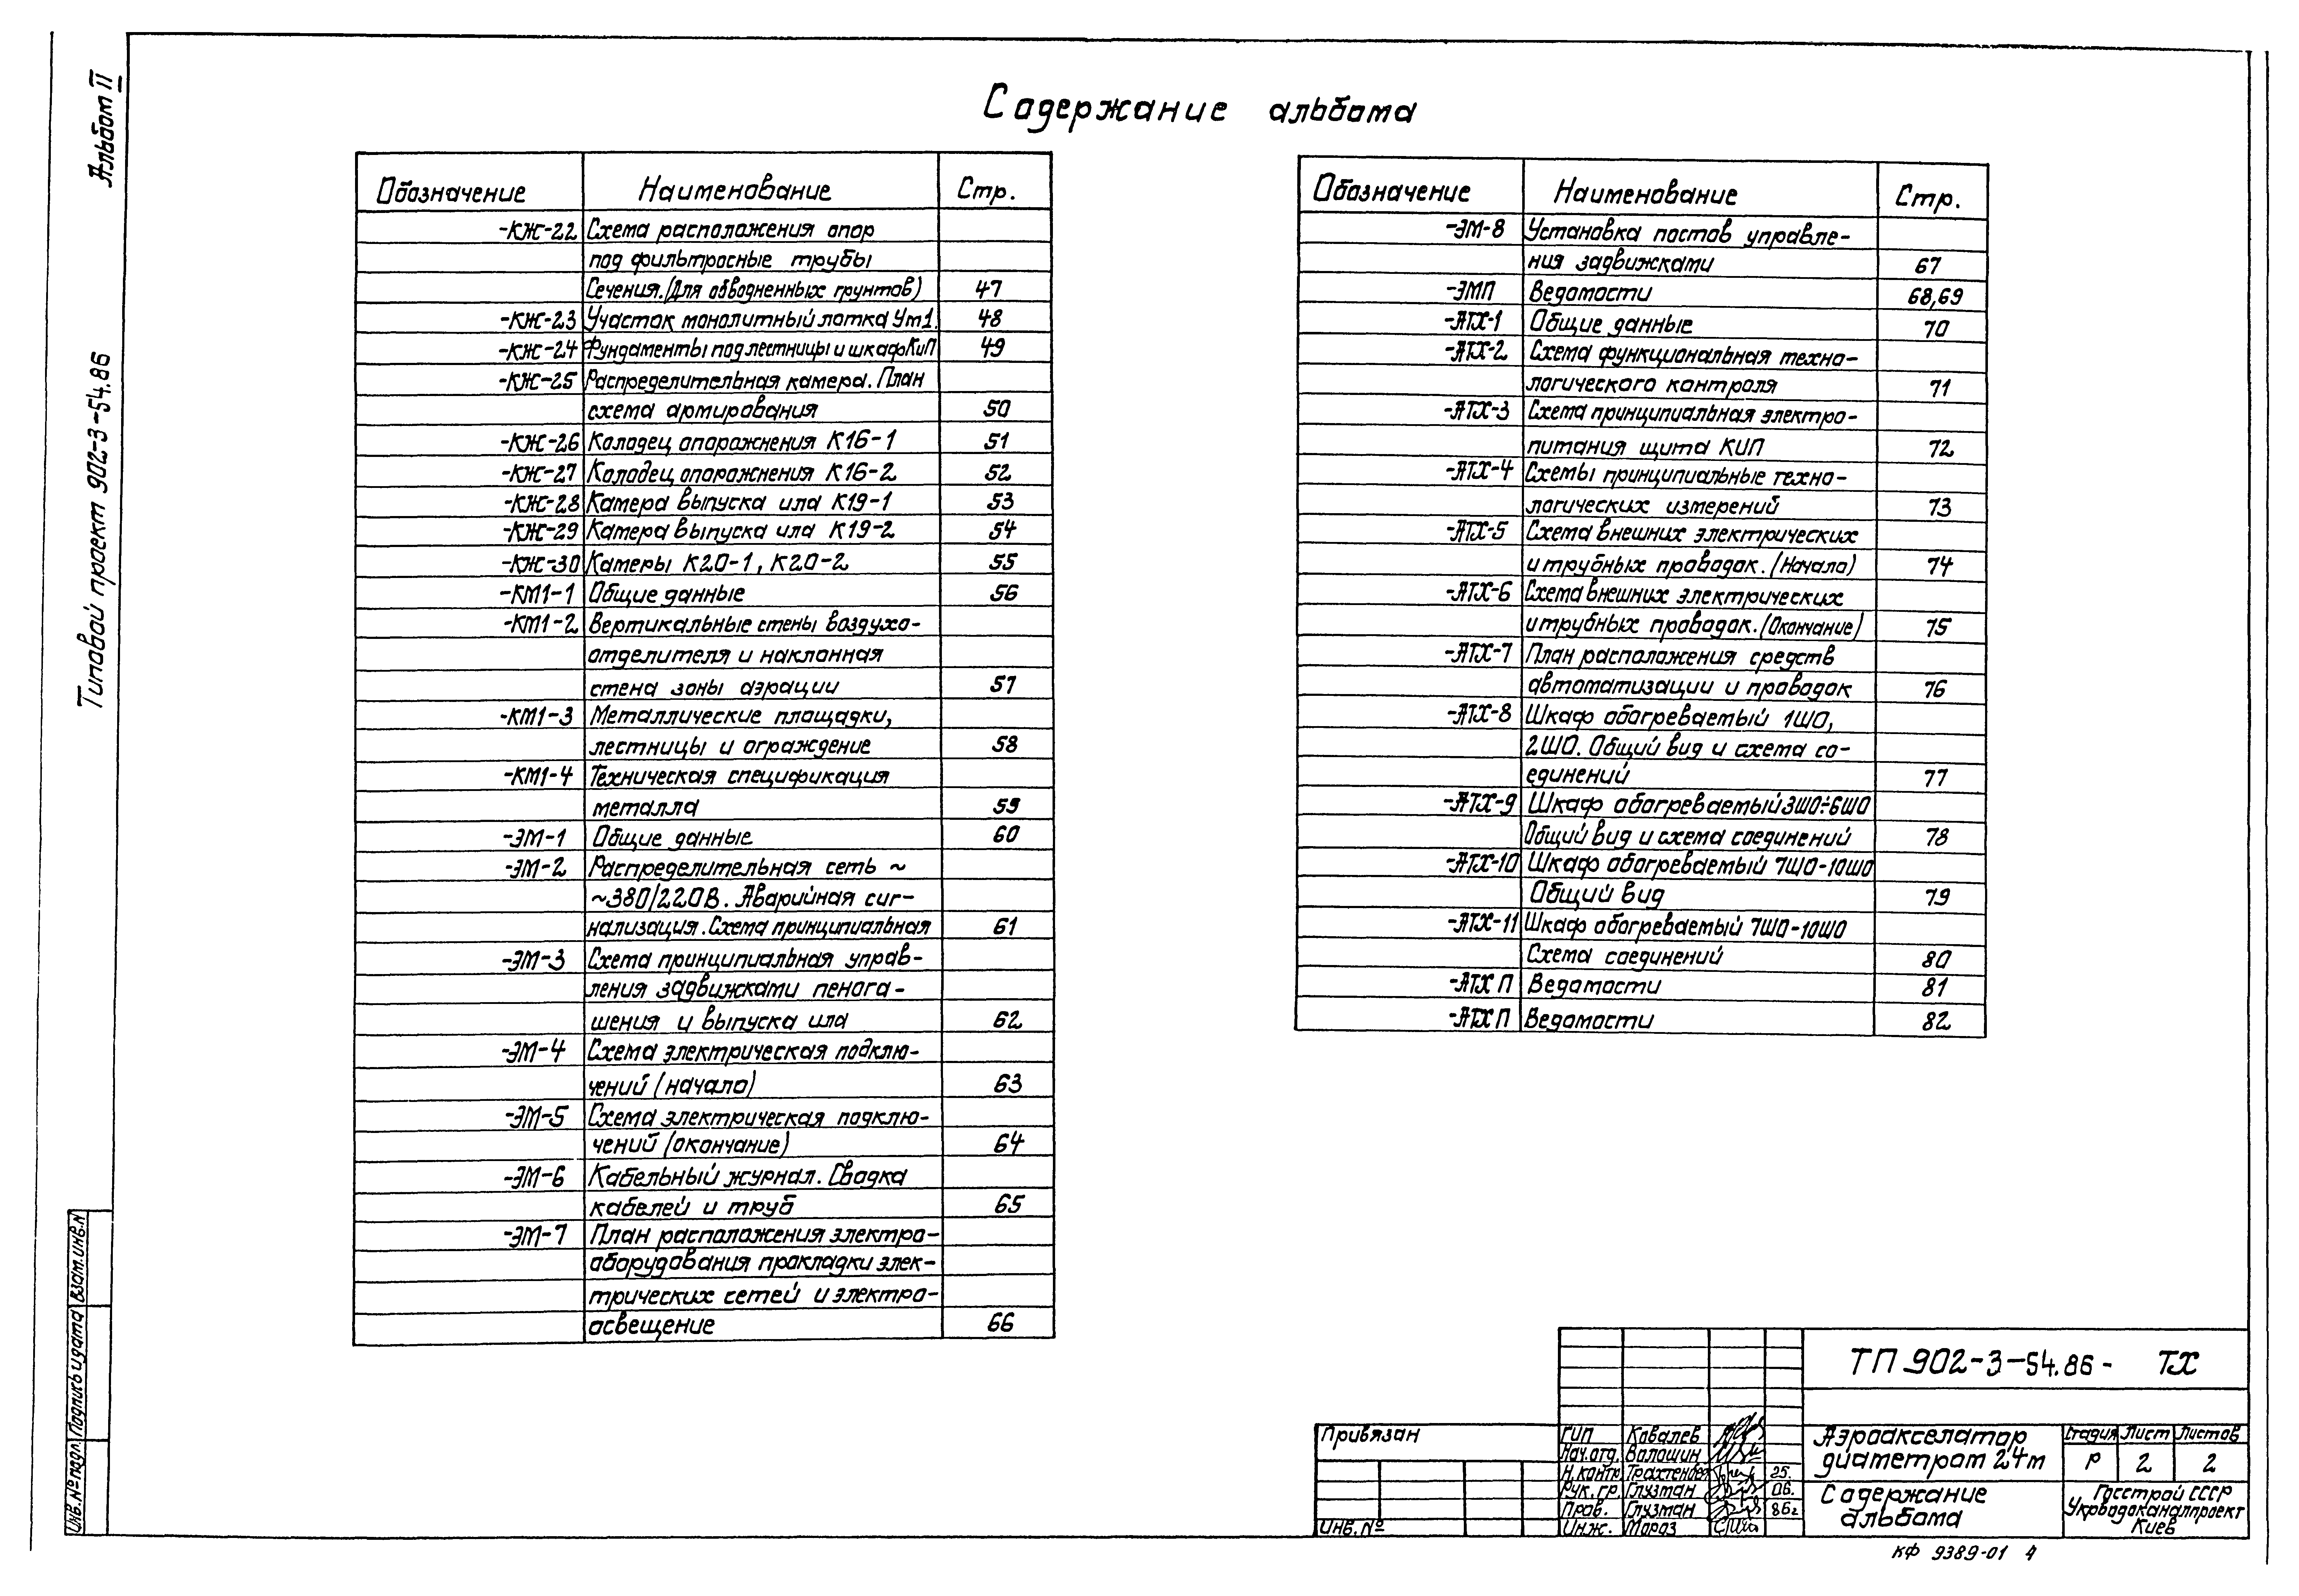 Альбом II
Типовой проект 902-3-54.86
Содержание альбома
Обозначение Наименование Стр.
-КЖ-22 Схема расположения опор
под фильтросные трубы
Сечения.(Для обводненных грунтов) 47
-КЖ-23 Участок монолитный лотка Ум1. 48
-КЖ-24 Фундаменты под лестницы и шкаф КиП 49
-КЖ-25 Распределительная камера. План
схема армирования 50
-КЖ-26 Колодец опорожнения К16-1 51
-КЖ-27 Колодец опорожнения К16-2 52
-КЖ-28 Камера выпуска ила К19-1 53
-КЖ-29 Камера выпуска ила К19-2 54
-КЖ-30 Камеры К20-1, К20-2 55
-КМ1-1 Общие данные 56
-КМ1-2 Вертикальные стены воздухо-
отделителя и наклонная
стена зоны аэрации 57
-КМ1-3 Металлические площадки,
лестницы и ограждение 58
-КМ1-4 Техническая спецификация
металла 59
-ЭМ-1 Общие данные 60
-ЭМ-2 Распределительная сеть ~
~380/220В. Аварийная сиг-
нализация. Схема принципиальная 61
-ЭМ-3 Схема принципиальная управ-
ления задвижками пенога-
шения и выпуска ила 62
-ЭМ-4 Схема электрическая подклю-
чений (начало) 63
-ЭМ-5 Схема электрическая подклю-
чений (окончание) 64
-ЭМ-6 Кабельный журнал. Сводка
кабелей и труб 65
-ЭМ-7 План расположения электро-
оборудования прокладки элек-
трических сетей и электро-
освещение 66
Обозначение Наименование Стр.
-ЭМ-8 Установка постов управле-
ния задвижками 67
-ЭМП Ведомости 68,69
-АТХ-1 Общие данные 70
-АТХ-2 Схема функциональная техно-
логического контроля 71
-АТХ-3 Схема принципиальная электро-
питания щита КИП 72
-АТХ-4 Схемы принципиальные техно-
логических измерений 73
-АТХ-5 Схема внешних электрических
и трубных проводок. (Начало) 74
-АТХ-6 Схема внешних электрических
и трубных проводок. (Окончание) 75
-АТХ-7 План расположения средств
автоматизации и проводок 76
-АТХ-8 Шкаф обогреваемый 1ШО,
2ШО. Общий вид и схема со-
единений 77
-АТХ-9 Шкаф обогреваемый 3ШО÷6ШО
Общий вид и схема соединений 78
-АТХ-10 Шкаф обогреваемый 7ШО-10ШО
Общий вид 79
-АТХ-11 Шкаф обогреваемый 7ШО-10ШО
Схема соединений 80
-АТХ П Ведомости 81
-АТХ П Ведомости 82
Инв.№ подл. Подпись и дата Взам.инв.N
Привязан
Инв.№
ГИП Ковалев
Нач.отд. Волошин
Н.контр. Трахтенберг 25.
Рук.гр. Глузман 06.
Пров. Глузман 86г
Инж. Мороз
ТП 902-3-54.86- ТХ
Аэроакселатор
диаметром 24м
Стадия Лист Листов
Р 2 2
Содержание
альбома
Госстрой СССР
Укрводоканалпроект
Киев
КФ 9389-01 4